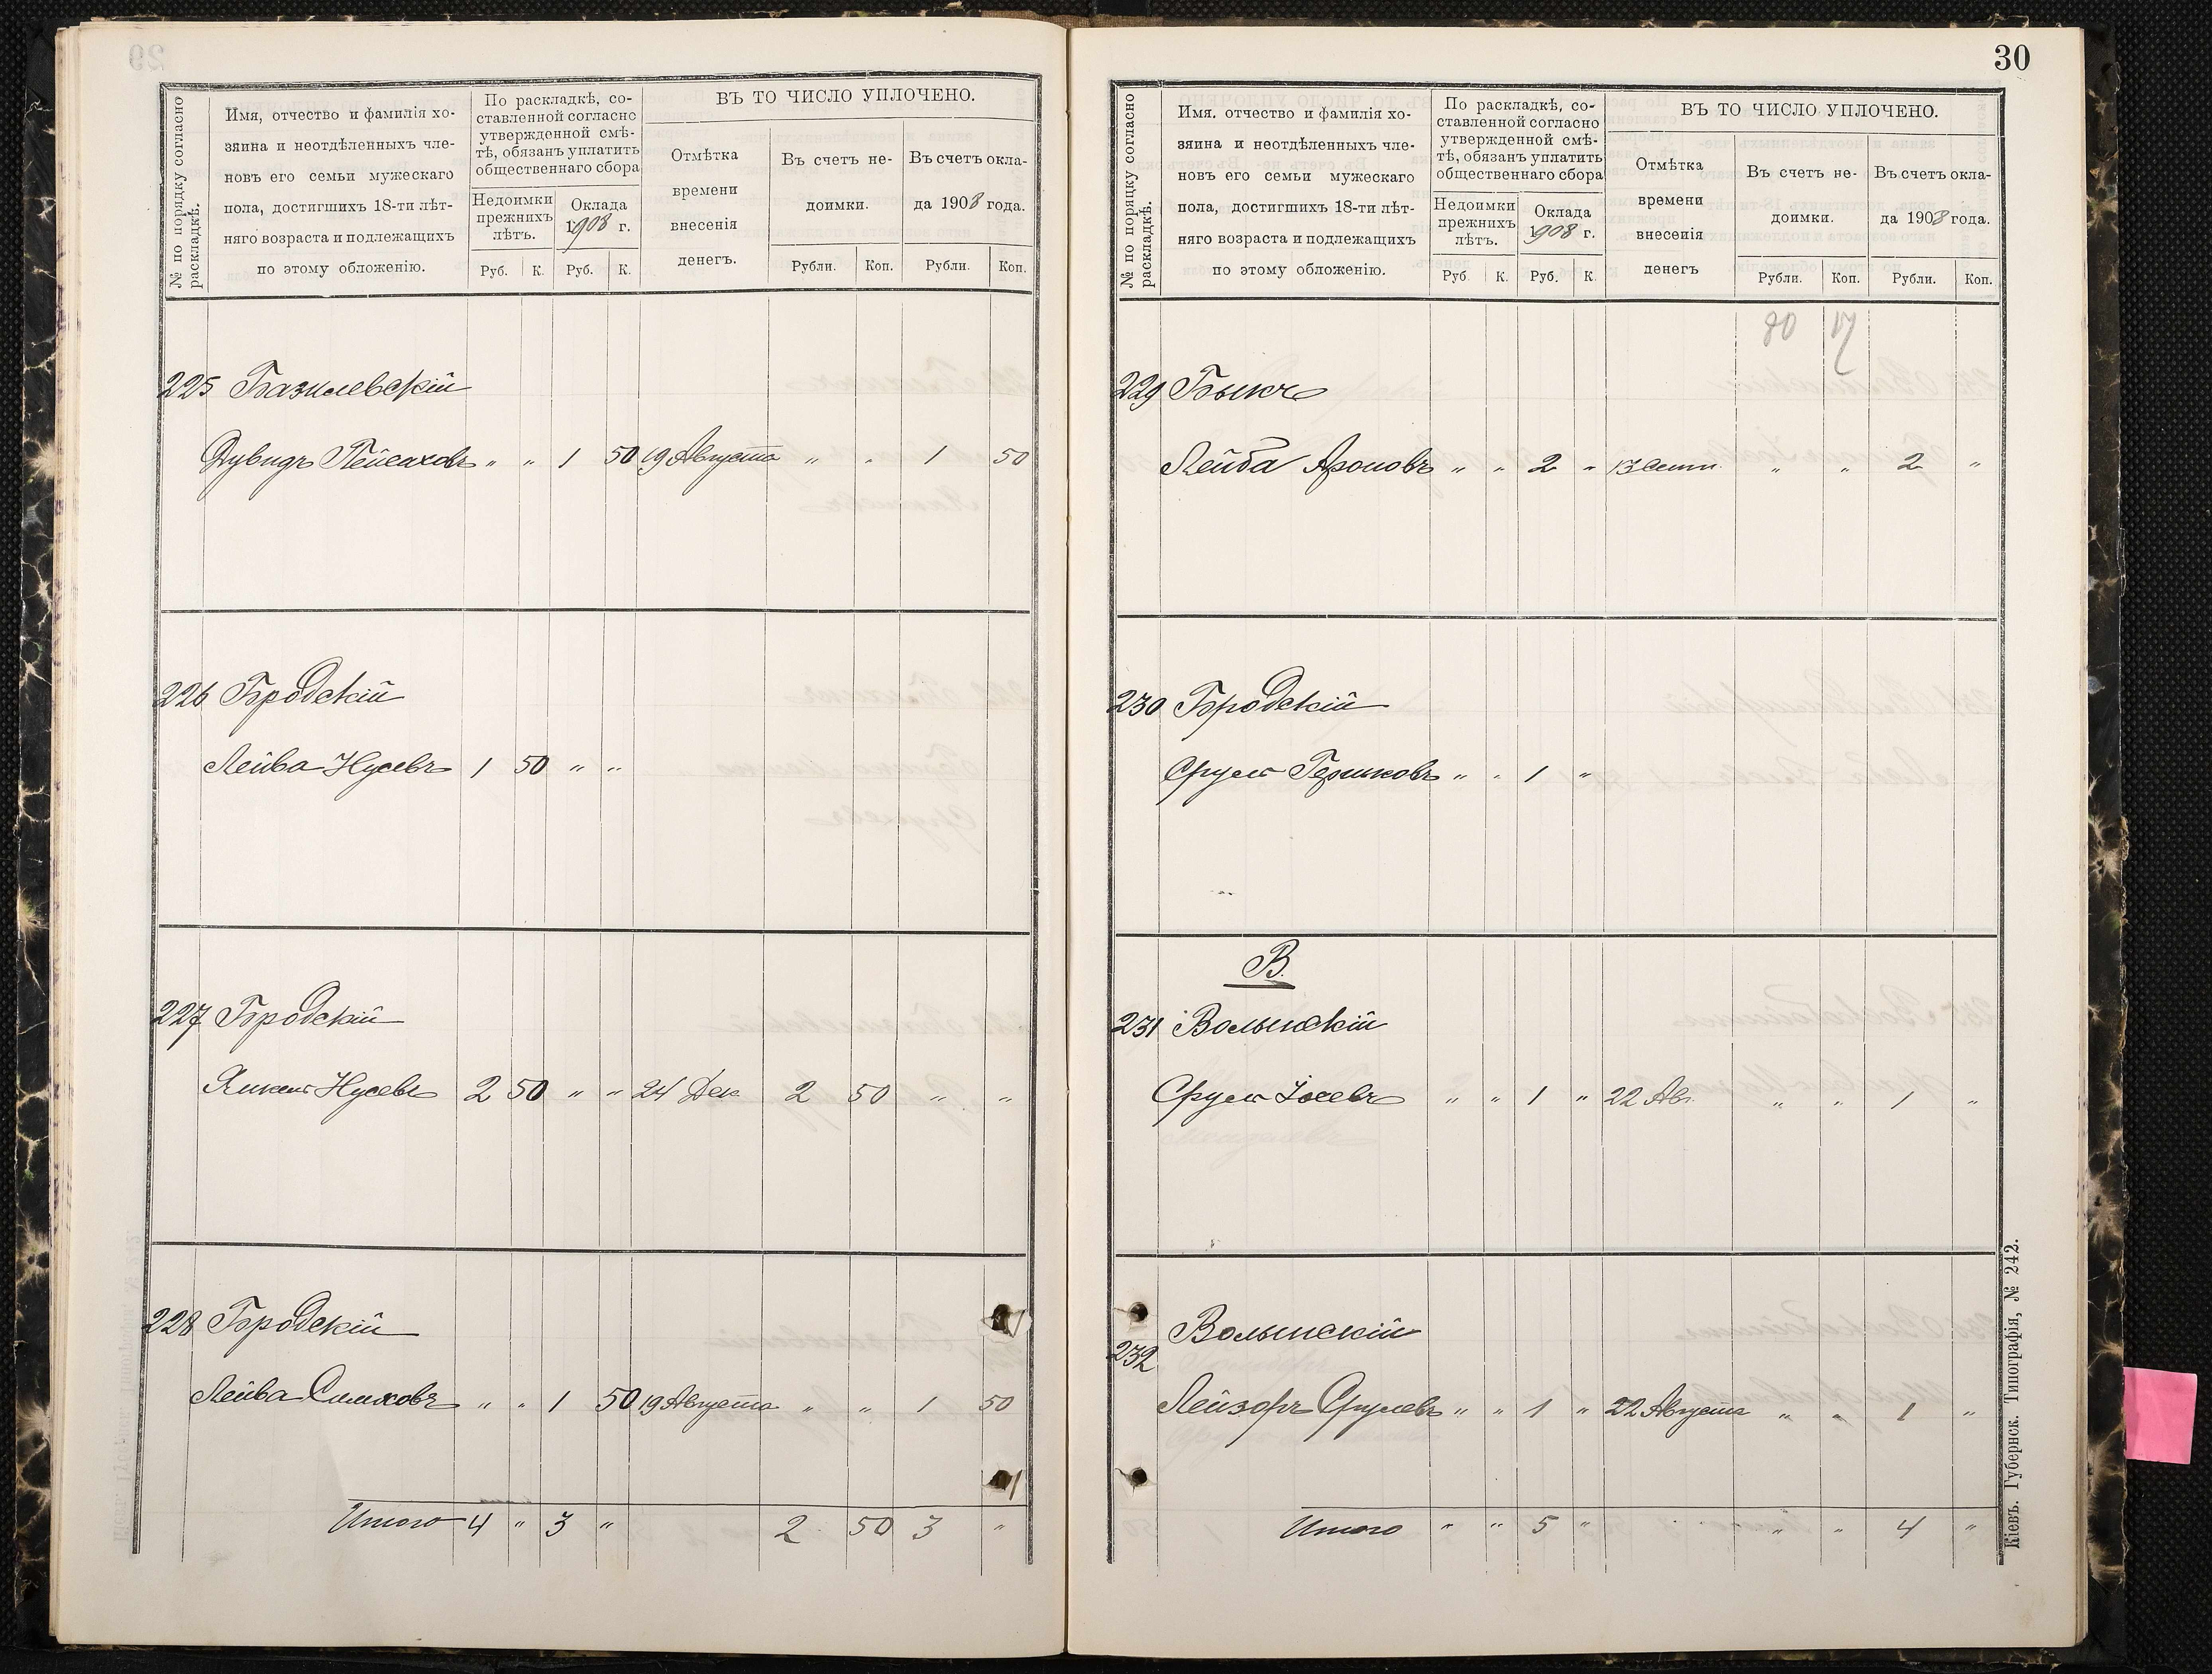 № по порядку согласно раскладкѣ.
Имя, отчество и фамилія хо-
зяина и неотдѣленныхъ чле-
новъ его семьи мужескаго
пола, достигшихъ 18-ти лѣт-
няго возраста и подлежащихъ
по этому обложенію.
По раскладкѣ, со-
ставленной согласно
утвержденной смѣ-
тѣ, обязанъ уплатить
общественнаго сбора
Недоимки прежнихъ лѣтъ.
Оклада 1908 г.
Руб. К. Руб. К.
ВЪ ТО ЧИСЛО УПЛОЧЕНО.
Отмѣтка времени внесенія денегъ.
Въ счетъ не-доимки.
Въ счетъ окла-да 1908 года.
Рубли. Коп. Рубли. Коп.
225 Базилевскій
Дувидъ Пейсаховъ " " 1 50 19 Августа " " 1 50
226 Бродскій
Лейба Нусевъ 1 50 " "
227 Бродскій
Нусевъ 2 50 " " 24 Дек 2 50 " "
228 Бродскій
Лейба Симховъ " " 1 50 19 Августа " " 1 50
Итого 4 " 3 " 2 50 3 "
30
№ по порядку согласно раскладкѣ.
Имя, отчество и фамилія хо-
зяина и неотдѣленныхъ чле-
новъ его семьи мужескаго
пола, достигшихъ 18-ти лѣт-
няго возраста и подлежащихъ
по этому обложенію.
По раскладкѣ, со-
ставленной согласно
утвержденной смѣ-
тѣ, обязанъ уплатить
общественнаго сбора
Недоимки прежнихъ лѣтъ.
Оклада 1908 г.
Руб. К. Руб. К.
ВЪ ТО ЧИСЛО УПЛОЧЕНО.
Отмѣтка времени внесенія денегъ
Въ счетъ не-доимки.
Въ счетъ окла-да 1908 года.
Рубли. Коп. Рубли. Коп.
80 17
229 Быкъ
Лейба Ароновъ " " 2 " 13 Сент. " " 2 "
230 Бродскій
Сруль Гершковъ " " 1 "
В.
231 Волынскій
Сруль Іосевъ " " 1 " 22 Ав. " " 1 "
232 Волынскій
Лейзоръ Срулевъ " " 1 " 22 Августа " " 1 "
Итого " " 5 " " " 4 "
Кіевъ. Губернск. Типографія, № 242.